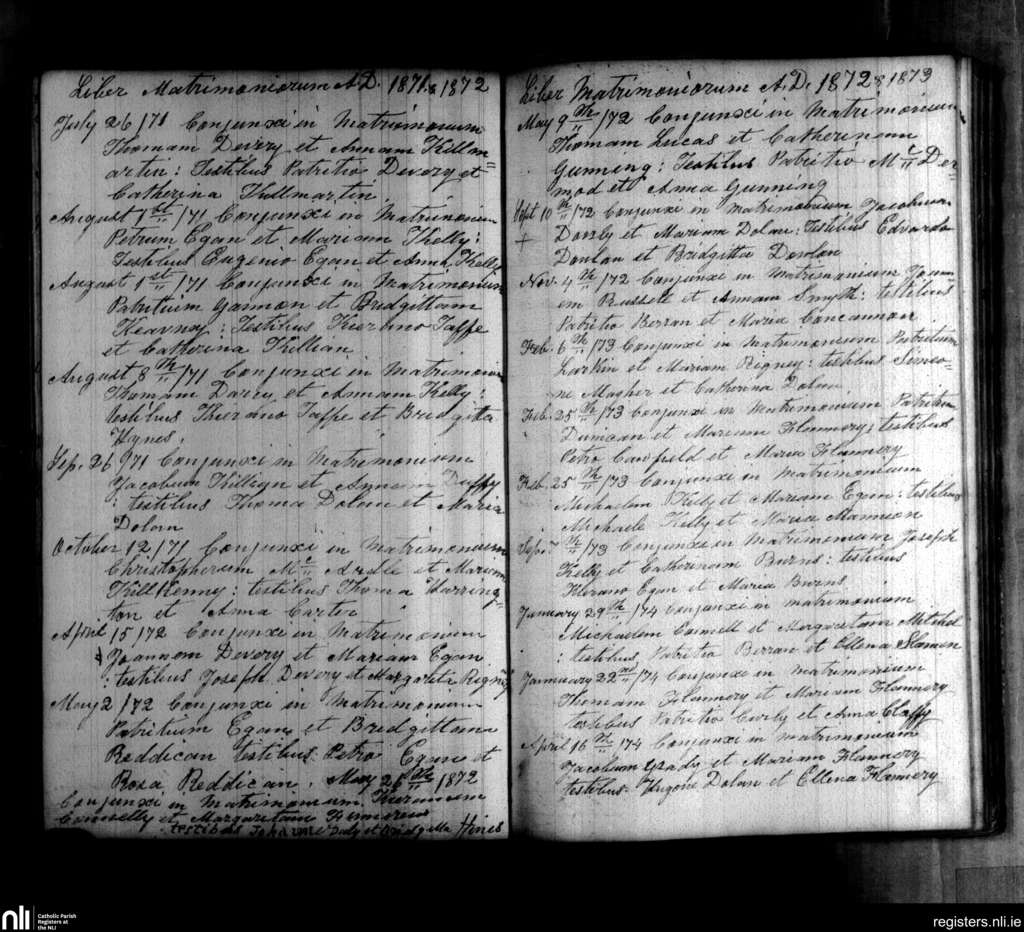 Liber Matrimoniorum A.D. 1871 & 1872
July 26/71 Conjunxi in Matrimonium
Thomam Devery et Annam Killm=
artin: Testibus Patritio Devery et
Catherina Killmartin
August 1st/71 Conjunxi in Matrimonium
Petrum Egan et Mariam Kelly:
Testibus Eugenio Egan et Anna Kelly
August 1st/71 Conjunxi in Matrimonium
Patritium Gannon et Bridgittam
Kearnay: Testibus Kierano Jaffe
et Catherina Killian
August 8th/71 Conjunxi in Matrimonium
Thomam Darcy et Annam Kelly:
testibus Kierano Jaffe et Bridgitta
Hynes.
Sep. 26/71 Conjunxi in Matrimonium
Jacobum Killian et Annam Duffy
: testibus Thoma Dolan et Maria
Dolan
October 12/71 Conjunxi in Matrimonium
Christopherum Mc Ardle et Mariam
Killkenny: testibus Thoma Harring=
ton et Anna Carter
April 15/72 Conjunxi in Matrimonium
Joannem Devery et Mariam Egan
: testibus Joseph Devery et Margarita Rigney
May 2/72 Conjunxi in Matrimonium
Patritium Egan et Bridgittam
Reddican testibus Petro Egan et
Rosa Reddican. May 26th 1872
Conjunxi in Matrimonium Kieranum
Connelly et Margaritam
testibus Joanne Daly et Bridgitta Hines
Liber Matrimoniorum A.D. 1872 & 1873
May 9th/72 Conjunxi in Matrimonium
Thomam Lucas et Catherinam
Gunning: Testibus Patritio Mc Der
mod et Anna Gunning
Sept 10th/72 Conjunxi in Matrimonium Jacobum
+ Dooly et Mariam Dolan: Testibus Edvardo
Donlon et Bridgitta Donlon
Nov. 4th/72 Conjunxi in Matrimonium Joann
em Russell et Annam Smyth: testibus
Patritio Berran et Maria Concannon
Feb. 6th/73 Conjunxi in Matrimonium Patritium
Larkin et Mariam Rigney: testibus Simeo=
ne Magher et Catherina Dolan
Feb. 25th/73 Conjunxi in Matrimonium Patritium
Duincan et Mariam Flannery: testibus
Petro Canfield et Maria Flannery
Feb. 25th/73 Conjunxi in Matrimonium
Michaelem Kelly et Mariam Egan: testibus
Michaele Kelly et Maria Mannion
Sep. 7th/73 Conjunxi in Matrimonium Joseph
Kelly et Catherinam Burns: testibus
Kierano Egan et Maria Burns
January 29th/74 Conjunxi in matrimonium
Michaelem Connell et Margaritam Mitchel
: testibus Patritio Berran et Ellena Slamon
January 22nd/74 Conjunxi in Matrimonium
Thomam Flannery et Mariam Flannery
testibus Patritio Curly et Anna Claffy
April 16th/74 Conjunxi in Matrimonium
Jacobum Grady et Mariam Flannery
testibus Hugone Dolan et Ellena Flannery
nli
Catholic Parish
Registers at
the NLI
registers.nli.ie